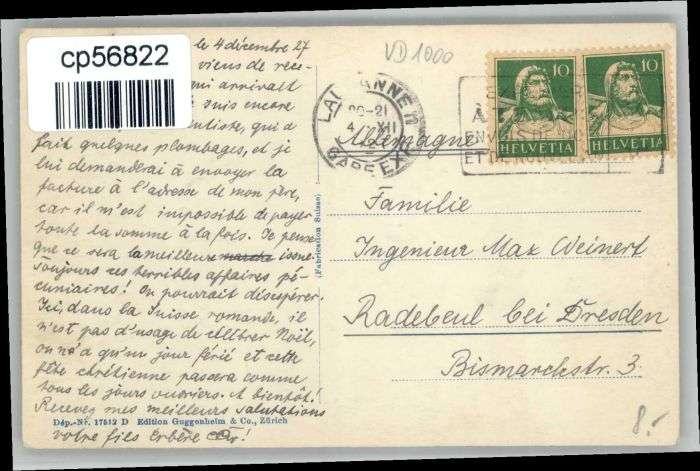 le 4 décembre 27
cp56822
viens de rece-
qui arrivait
suis encore
dentiste, qui a
fait quelques plombages, et je
lui demanderai à envoyer la
facture à l'adresse de mon père,
car il m'est impossible de payer
toute la somme à la fois. Je pense
que ce sera la meilleure issue.
Toujours ces terribles affaires pé-
cuniaires! On pourrait désespérer.
Ici, dans la Suisse romande, il
n'est pas d'usage de célébrer Noël,
on n'a qu'un jour férié et cette
fête chrétienne passera comme
tous les jours ouvriers. A bientôt!
Recevez mes meilleurs salutations
Dép.-Nr. 17512 D Edition Guggenheim & Co., Zürich
votre fils
(Fabrication Suisse)
VD1000
LAUSANNE
20-21
4 XII
GARE EXP
10 10
HELVETIA HELVETIA
Allemagne
Familie
Ingenieur Max Weinert
Radebeul bei Dresden
Bismarckstr. 3.
8.-